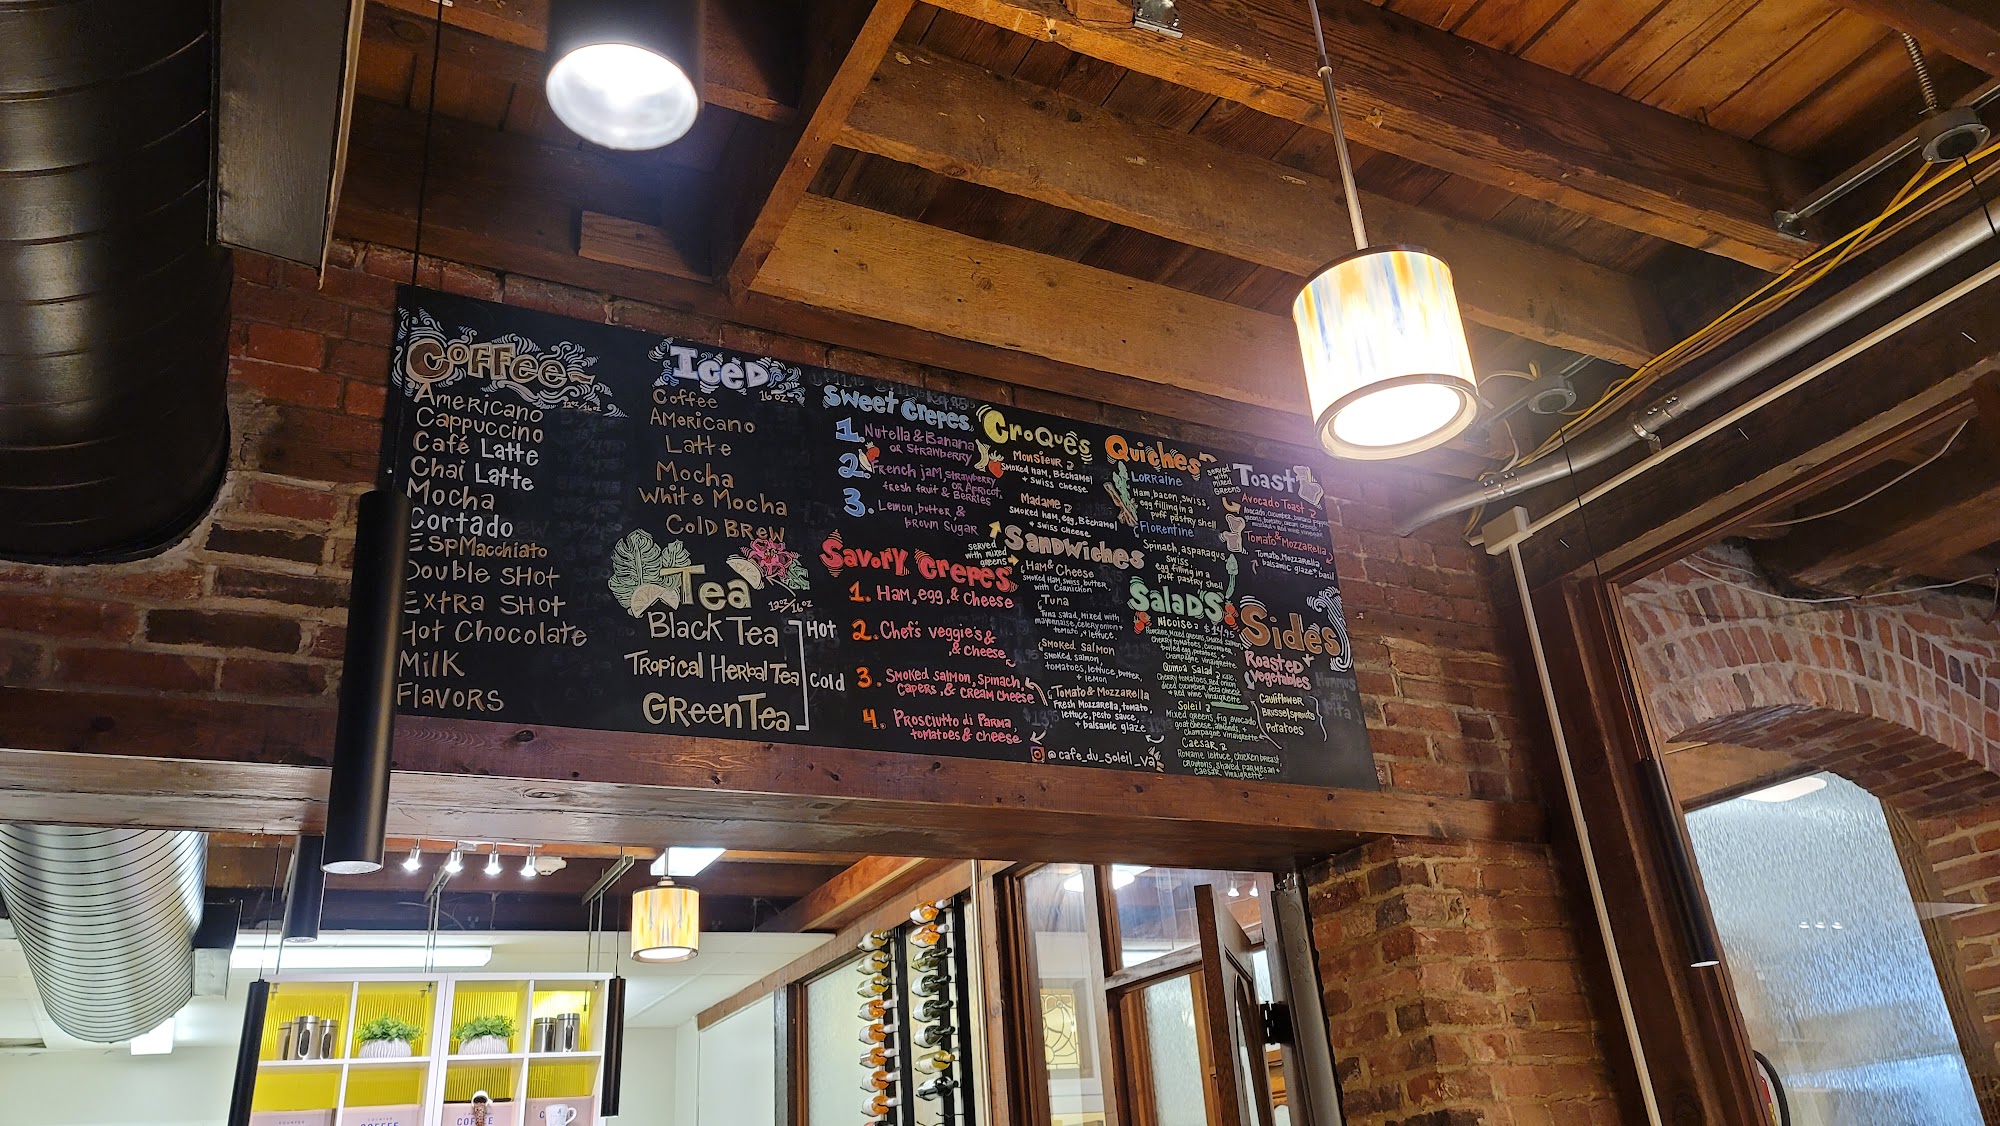 Coffee
12oz/16oz
Americano
Cappuccino
Café Latte
Chai Latte
Mocha
Cortado
Esp Macchiato
Double Shot
Extra Shot
Hot Chocolate
Milk
Flavors
Iced
16oz
Coffee
Americano
Latte
Mocha
White Mocha
Cold Brew
Tea
12oz/16oz
Black Tea
Tropical Herbal Tea
Green Tea
Hot
Cold
Sweet Crepes
1. Nutella & Banana
or Strawberry
2. French jam, strawberry
or Apricot,
fresh fruit & Berries
3. Lemon, butter &
brown sugar
Savory Crepes
1. Ham, egg, & Cheese
2. Chef's veggie's &
& cheese
3. Smoked salmon, spinach,
capers, & cream cheese
4. Prosciutto di Parma,
tomatoes & cheese
Croques
Monsieur
smoked ham, Béchamel
+ swiss cheese
Madame
smoked ham, egg, Béchamel
+ swiss cheese
served
with mixed
greens
Sandwiches
Ham & Cheese
smoked ham, swiss, butter,
with Cornichon
Tuna
Tuna salad, mixed with
mayonnaise, celery, onion +
tomato, + lettuce.
Smoked Salmon
smoked salmon,
tomatoes, lettuce, butter,
+ lemon
Tomato & Mozzarella
Fresh Mozzarella, tomato,
lettuce, pesto sauce,
+ balsamic glaze
@cafe_du_soleil_va
Quiches
served
with
mixed
greens
Lorraine
Ham, bacon, swiss,
egg filling in a
puff pastry shell
Florentine
Spinach, asparagus
swiss,
egg filling in a
puff pastry shell
Salads
Nicoise $14.95
Romaine, mixed greens, smoked salmon,
cherry tomatoes, cucumber,
boiled egg, potatoes, +
champagne vinaigrette
Quinoa Salad
kale,
cherry tomatoes, red onion
diced cucumber, feta cheese
+ Red wine vinaigrette
Soleil
Mixed greens, fig, avocado
goat cheese, almonds, +
champagne vinaigrette
Caesar
Romaine lettuce, chicken breast
croutons, shaved parmesan +
caesar vinaigrette
Toast
Avocado Toast
Tomato & Mozzarella
Tomato, Mozzarella,
balsamic glaze, basil
Sides
Roasted
Vegetables
Cauliflower
Brussel sprouts
Potatoes
Hummus
and
Pita
COFFEE